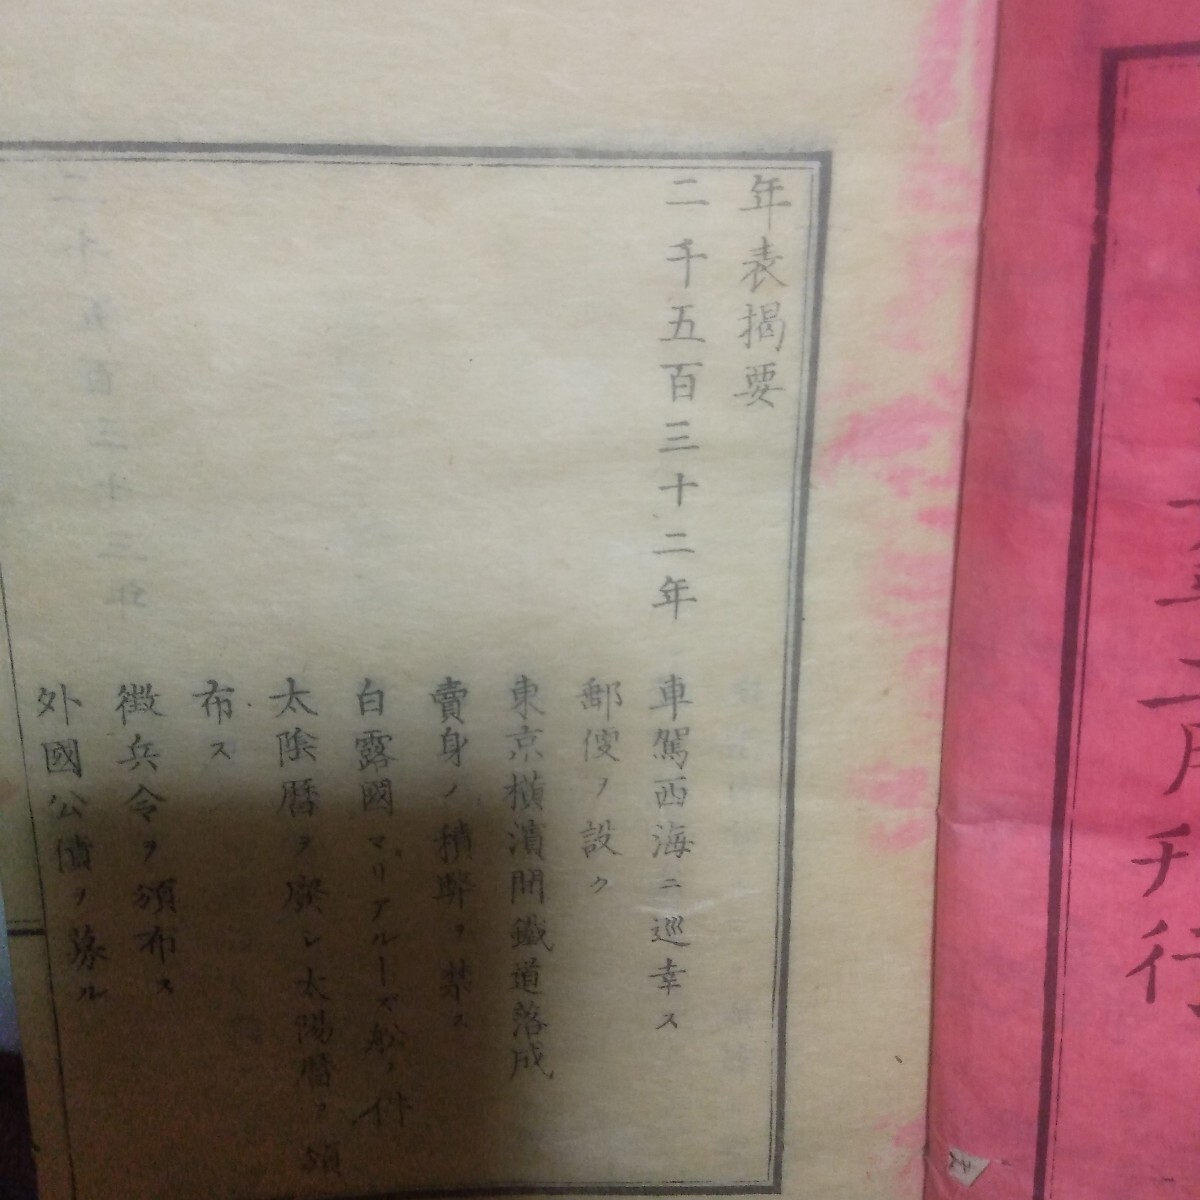 年表揭要
二千五百三十二年
車駕西海ニ巡幸ス
郵便ヲ設ク
東京橫濱間鐵道落成
賣身ノ積弊ヲ禁ス
白露國マリアルーズ舩ノ件
太陰曆ヲ廢シ太陽曆ヲ頒
布ス
徴兵令ヲ頒布ス
外國公債ヲ募ル